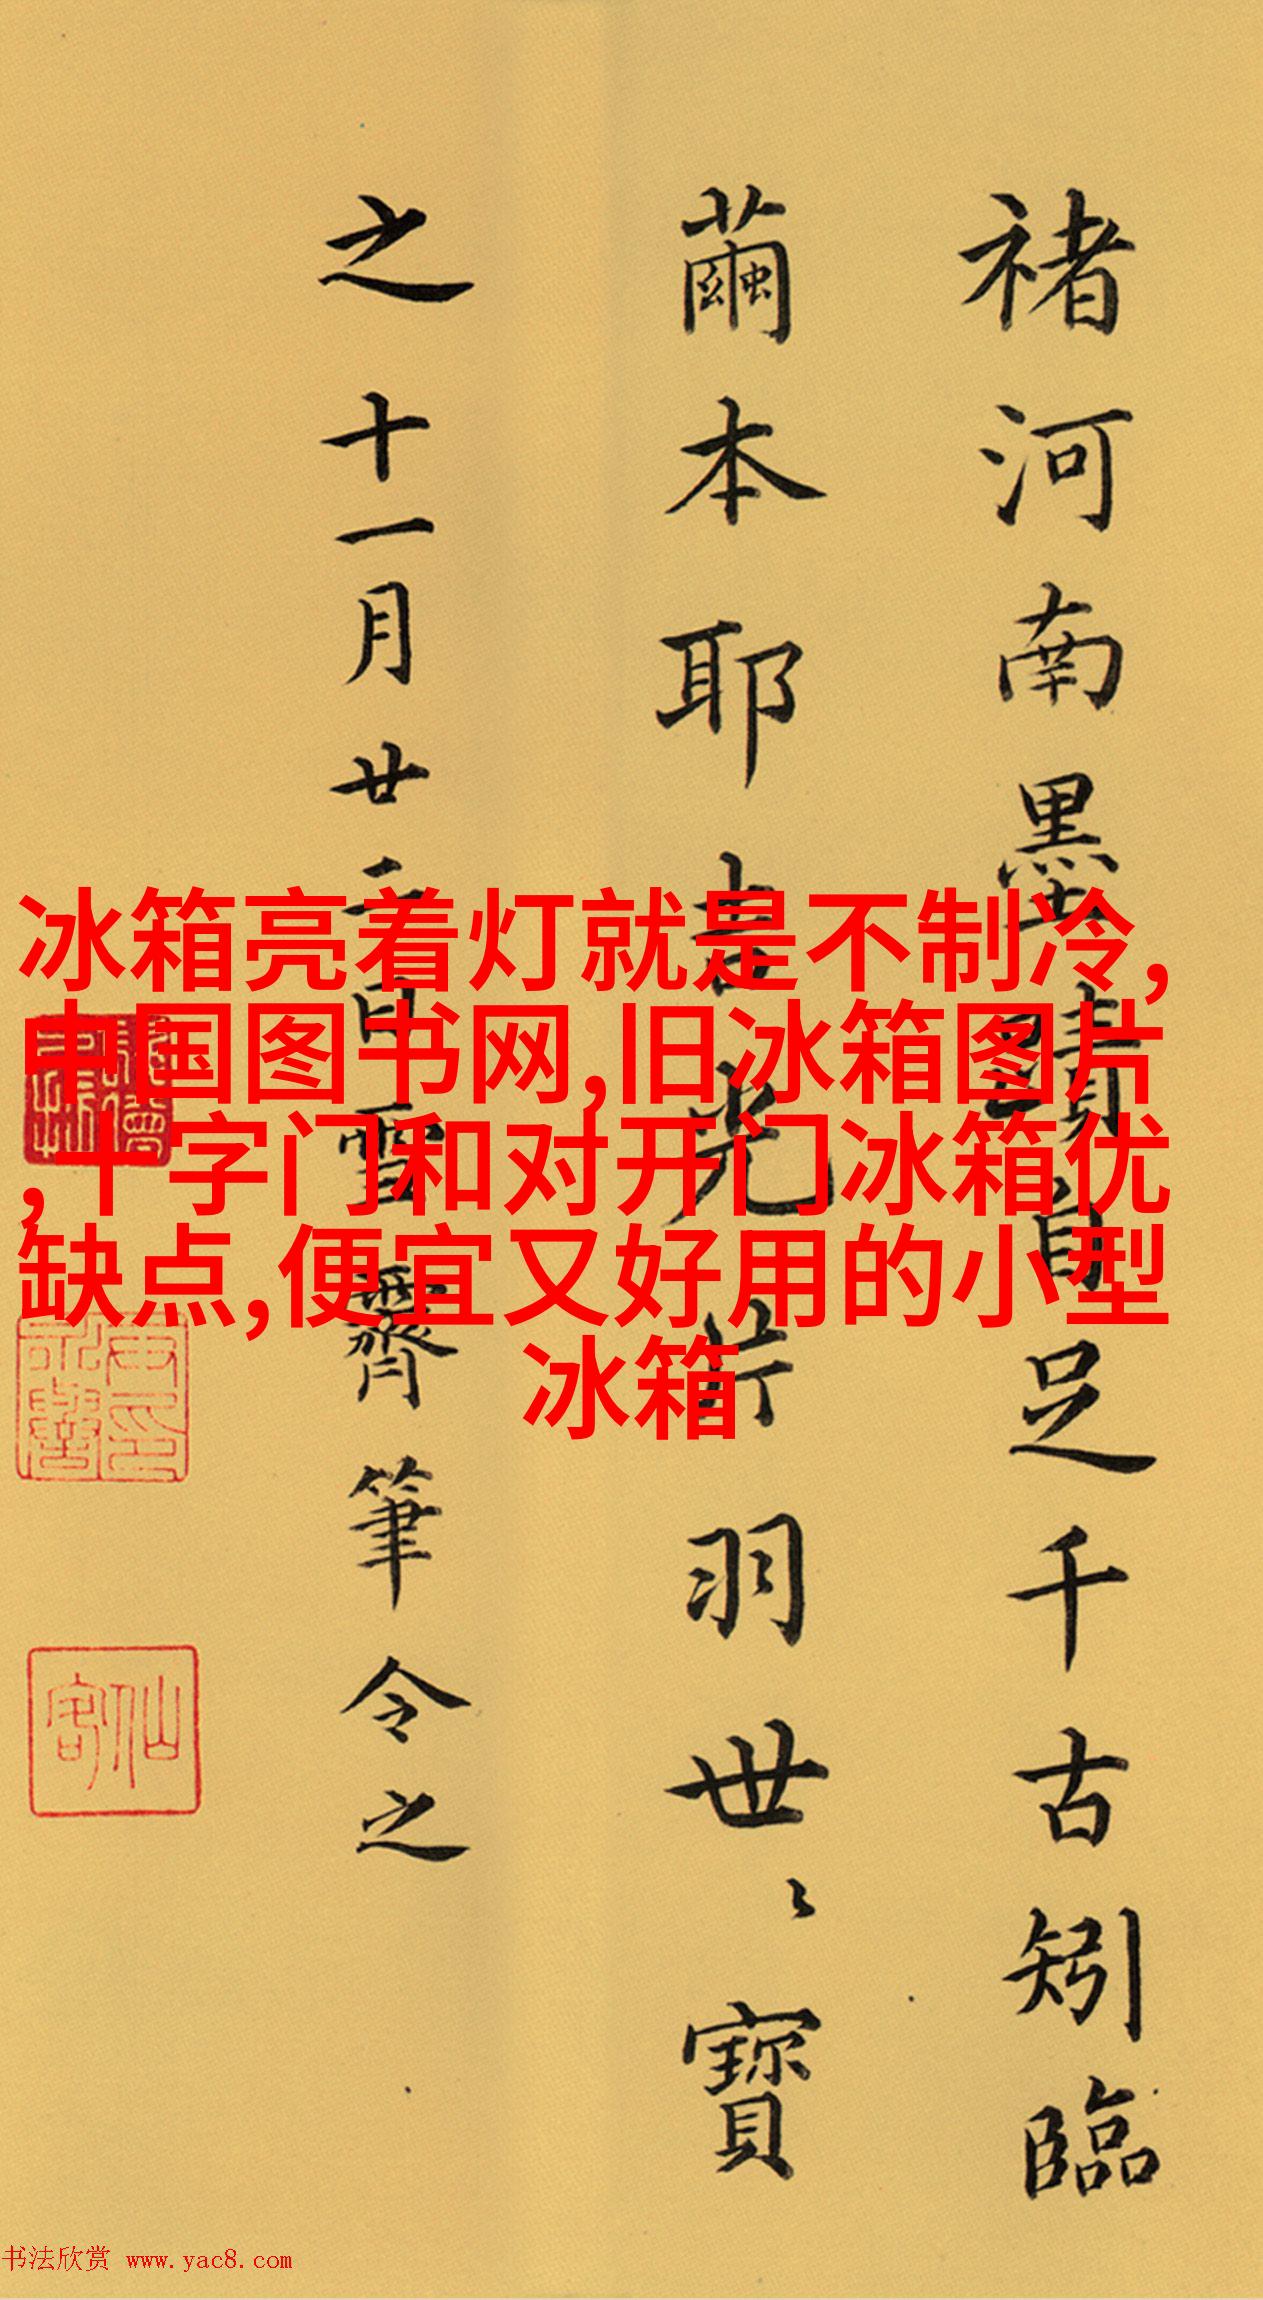 褚河南墨蹟自足千古矧臨
繭本耶書光片羽世〻寶
之十一月廿二日雪霽筆令之
冰箱亮着灯就是不制冷,
中国图书网,旧冰箱图片
,十字门和对开门冰箱优
缺点,便宜又好用的小型
冰箱
仙客
书法欣赏 www.yac8.com